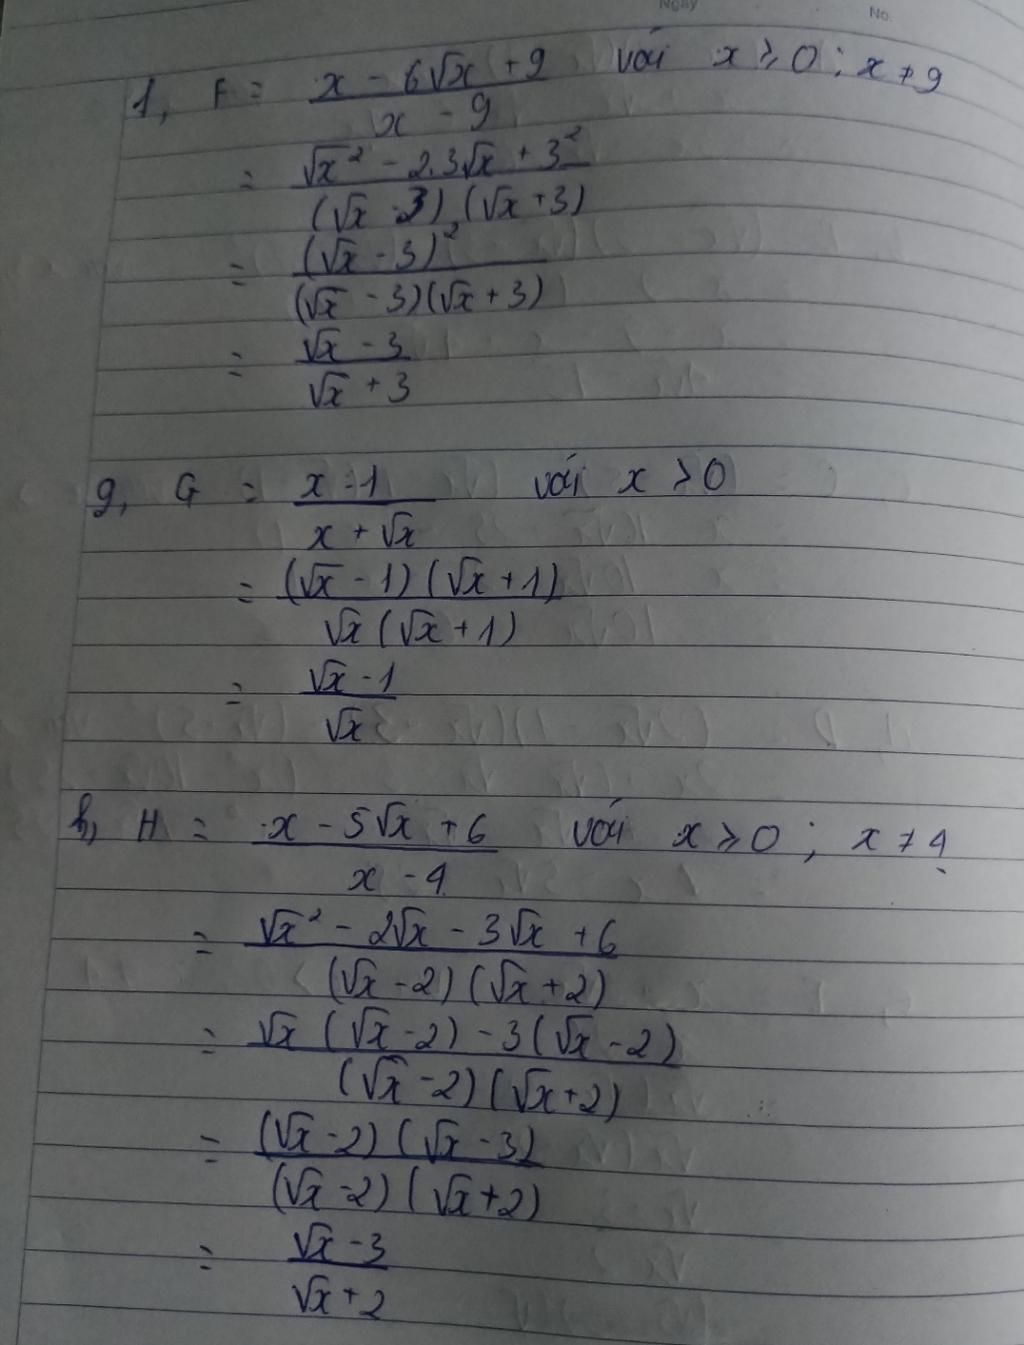 Ngày No.
1, F = \frac{x - 6\sqrt{x} + 9}{x - 9} với x ⩾ 0 ; x ≠ 9
= \frac{\sqrt{x}^2 - 2.3\sqrt{x} + 3^2}{(\sqrt{x} - 3)(\sqrt{x} + 3)}
= \frac{(\sqrt{x} - 3)^2}{(\sqrt{x} - 3)(\sqrt{x} + 3)}
= \frac{\sqrt{x} - 3}{\sqrt{x} + 3}
g, G = \frac{x - 1}{x + \sqrt{x}} với x > 0
= \frac{(\sqrt{x} - 1)(\sqrt{x} + 1)}{\sqrt{x}(\sqrt{x} + 1)}
= \frac{\sqrt{x} - 1}{\sqrt{x}}
h, H = \frac{x - 5\sqrt{x} + 6}{x - 4} với x ⩾ 0 ; x ≠ 4
= \frac{\sqrt{x}^2 - 2\sqrt{x} - 3\sqrt{x} + 6}{(\sqrt{x} - 2)(\sqrt{x} + 2)}
= \frac{\sqrt{x}(\sqrt{x} - 2) - 3(\sqrt{x} - 2)}{(\sqrt{x} - 2)(\sqrt{x} + 2)}
= \frac{(\sqrt{x} - 2)(\sqrt{x} - 3)}{(\sqrt{x} - 2)(\sqrt{x} + 2)}
= \frac{\sqrt{x} - 3}{\sqrt{x} + 2}